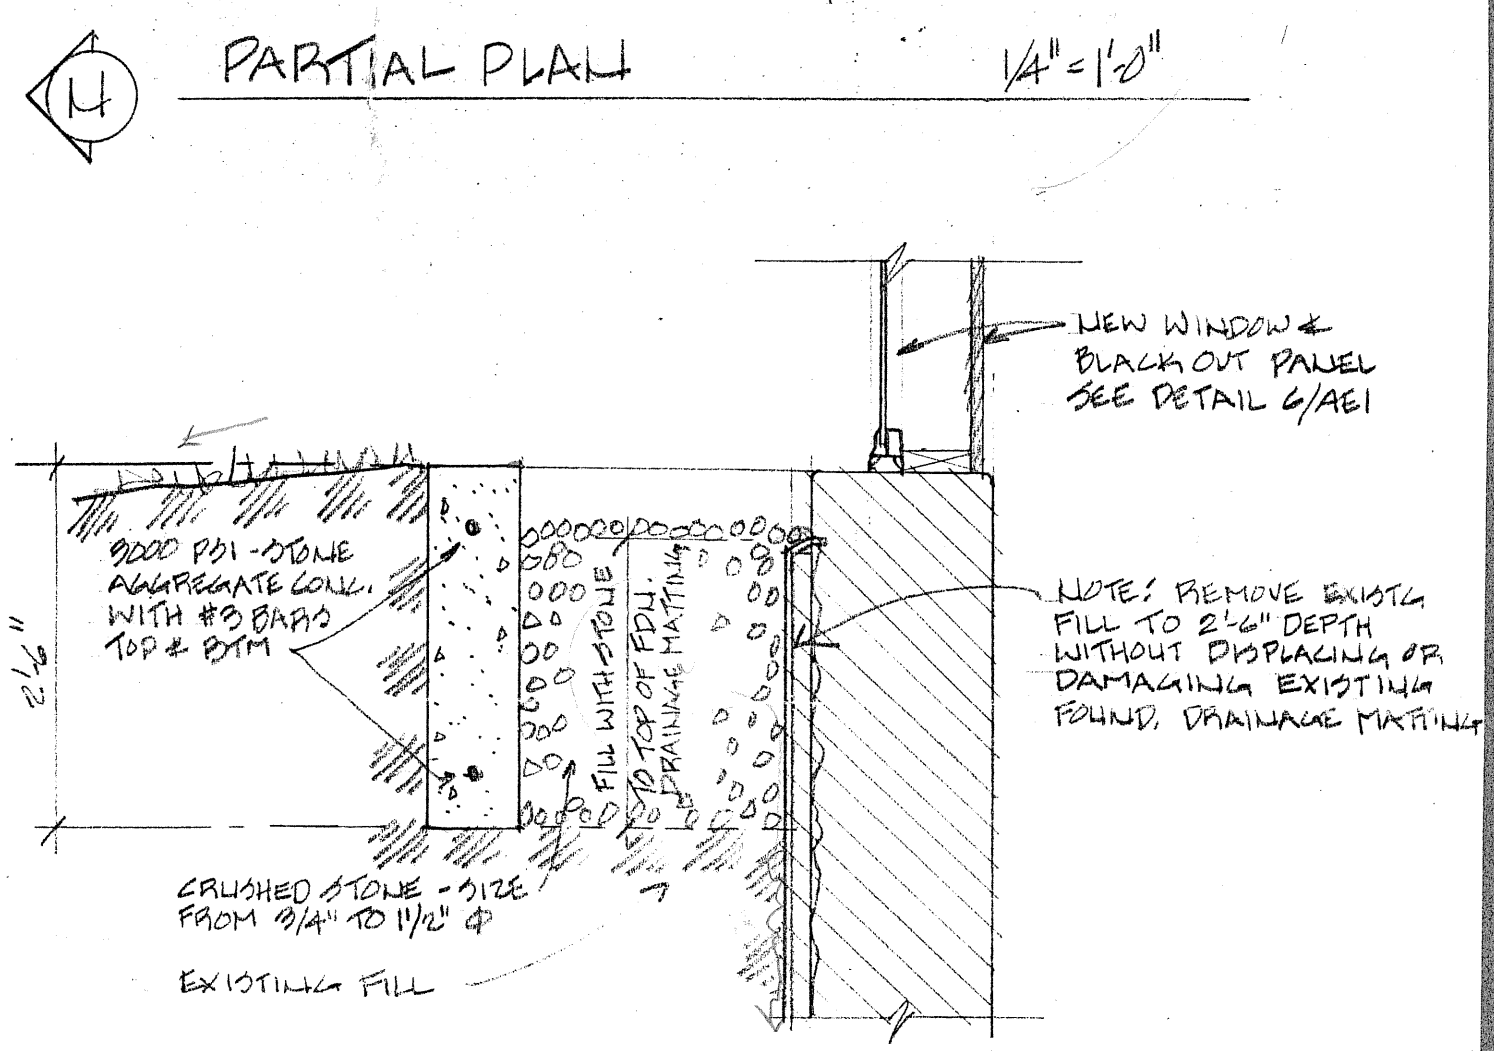 N
PARTIAL PLAN
1/4" = 1'-0"
NEW WINDOW &
BLACK OUT PANEL
SEE DETAIL 6/AE1
3000 PSI - STONE
AGGREGATE CONC.
WITH #3 BARS
TOP & BTM
2'-6"
FILL WITH STONE
TO TOP OF FDN.
DRAINAGE MATTING
NOTE: REMOVE EXISTG
FILL TO 2'-6" DEPTH
WITHOUT DISPLACING OR
DAMAGING EXISTING
FOUND. DRAINAGE MATTING
CRUSHED STONE - SIZE
FROM 3/4" TO 1 1/2" Φ
EXISTING FILL